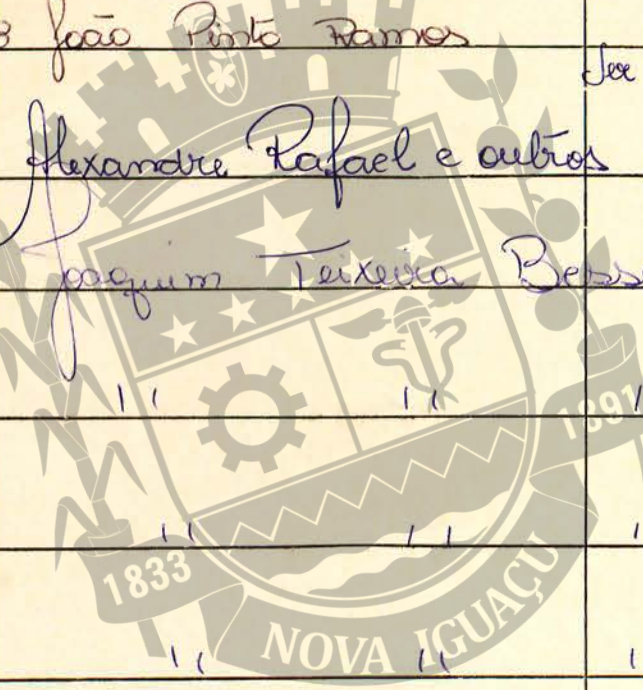 João Pinto Ramos
Alexandre Rafael e outros
Joaquim Teixeira Bess
" "
" "
" "
1891
1833
NOVA IGUAÇU